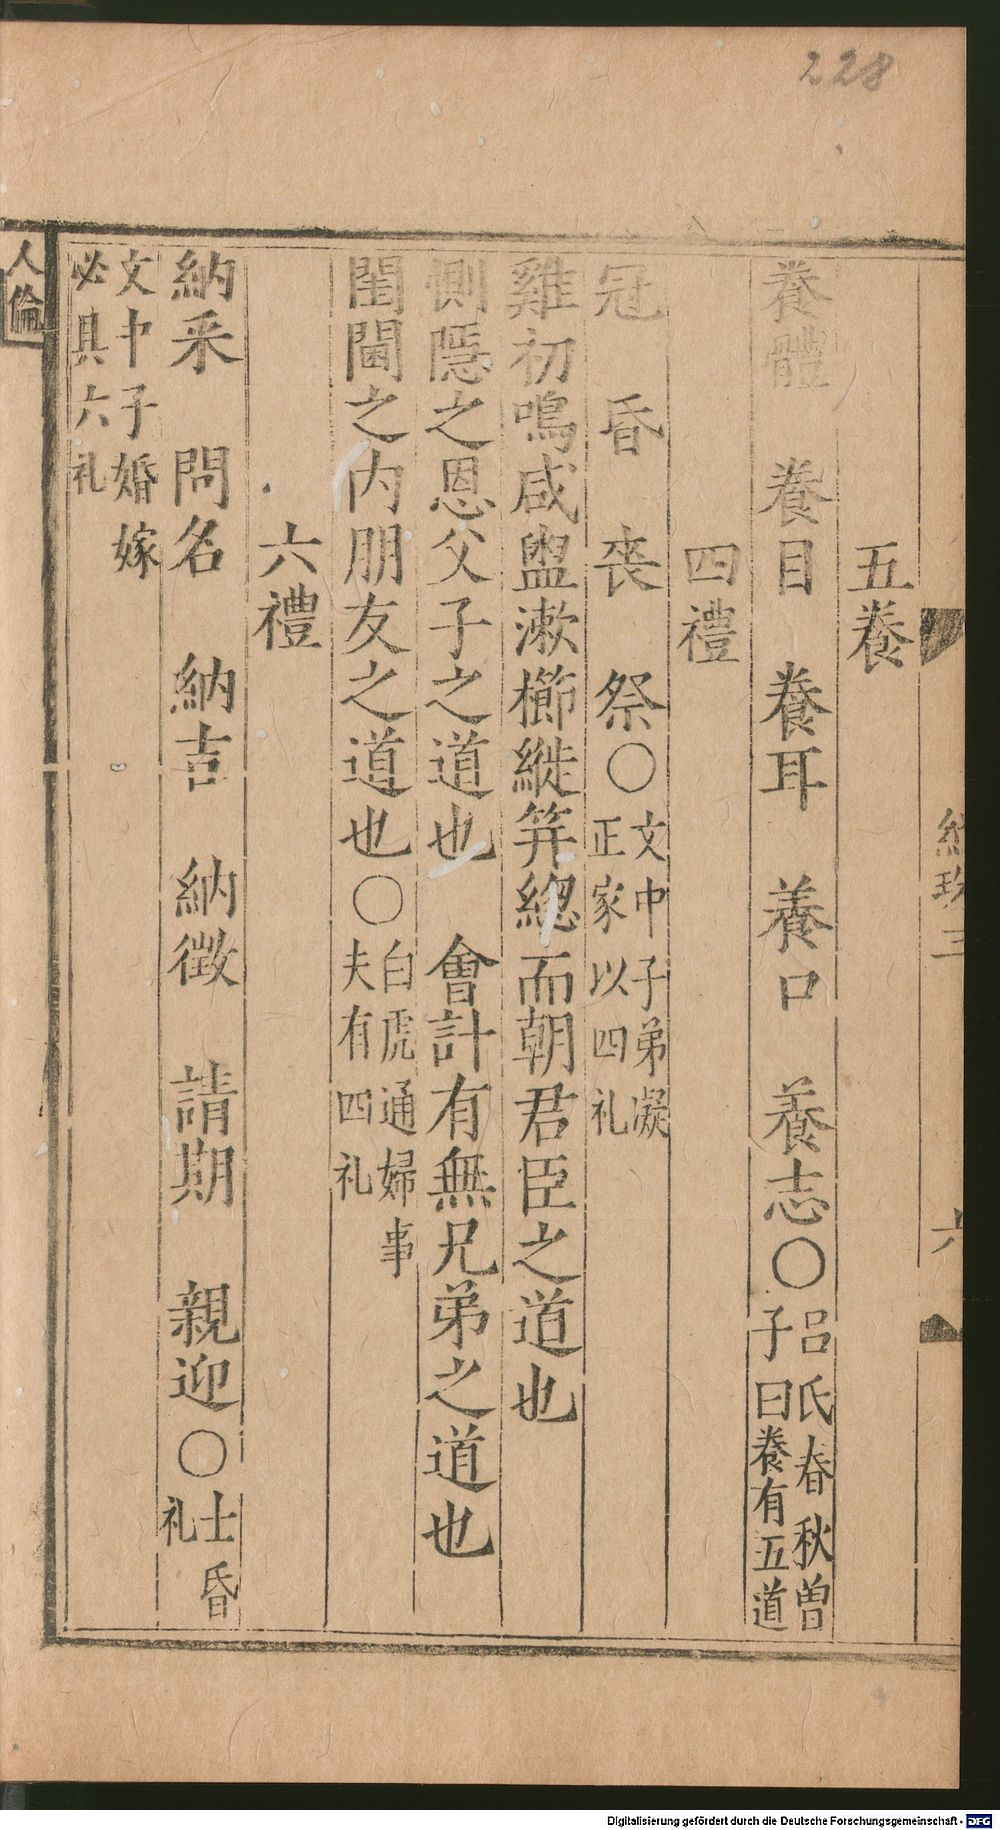 228
五養
養體　養目　養耳　養口　養志○呂氏春秋曽
子曰養有五道
四禮
冠　昏　喪　祭○文中子弟凝
正家以四礼
雞初鳴咸盥漱櫛縰笄緫而朝君臣之道也
惻隱之恩父子之道也　會計有無兄弟之道也
閨閫之内朋友之道也○白虎通婦事
夫有四礼
六禮
納采　問名　納吉　納徴　請期　親迎○士昏
礼
文中子婚嫁
必具六礼
人倫
三
六
Digitalisierung gefördert durch die Deutsche Forschungsgemeinschaft - DFG